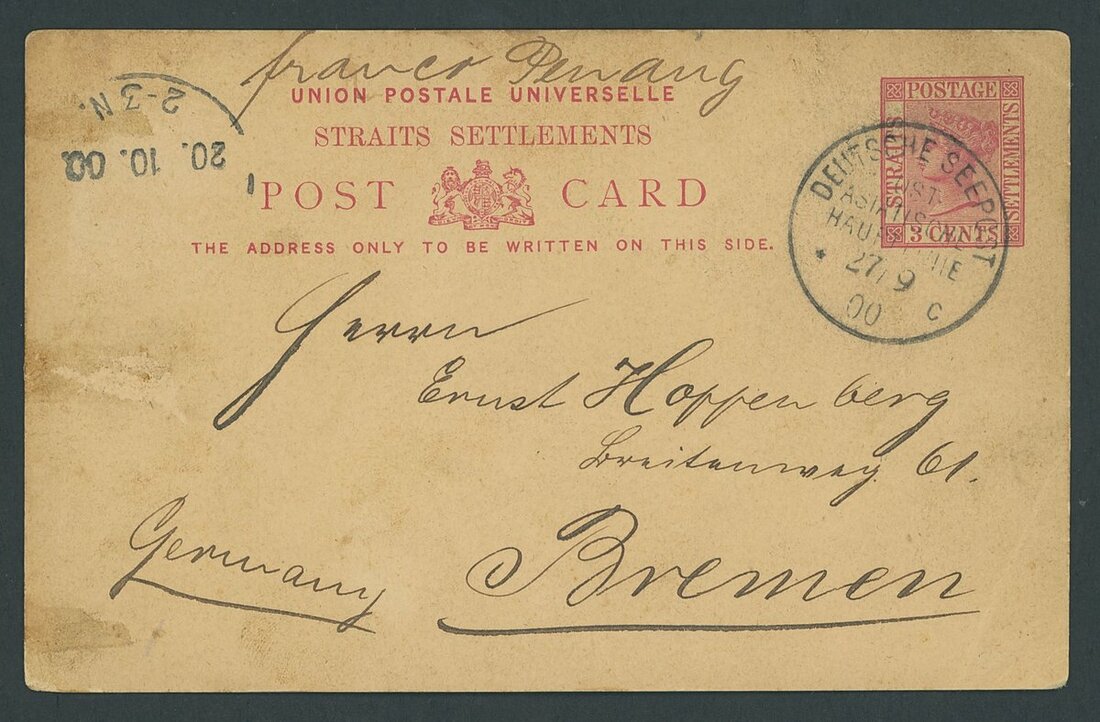 franco Penang
UNION POSTALE UNIVERSELLE
STRAITS SETTLEMENTS
POST CARD
THE ADDRESS ONLY TO BE WRITTEN ON THIS SIDE.
POSTAGE
STRAITS
SETTLEMENTS
3 CENTS
DEUTSCHE SEEPOST
OST-
ASIATISCHE
HAUPTLINIE
27/9
00 c
20. 10. 00
2-3 N.
Herrn
Ernst Hoppenberg
Breitenweg 61.
Bremen
Germany